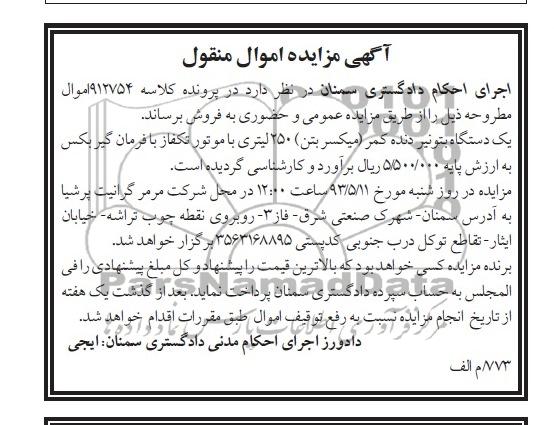 آگهی مزایده اموال منقول
اجرای احکام دادگستری سمنان در نظر دارد در پرونده کلاسه ۹۱۲۷۵۴اموال
مطروحه ذیل را از طریق مزایده عمومی و حضوری به فروش برساند.
یک دستگاه بتونیر دنده کمر (میکسر بتن) ۲۵۰ لیتری با موتور تکفاز با فرمان گیر بکس
به ارزش پایه ۵/۵۰۰/۰۰۰ ریال برآورد و کارشناسی گردیده است.
مزایده در روز شنبه مورخ ۹۳/۵/۱۱ ساعت ۱۲:۰۰ در محل شرکت مرمر گرانیت پرشیا
به آدرس سمنان- شهرک صنعتی شرق- فاز۳- روبروی نقطه چوب تراشه- خیابان
ایثار- تقاطع توکل درب جنوبی کدپستی ۳۵۶۳۱۶۸۸۹۵ برگزار خواهد شد.
برنده مزایده کسی خواهد بود که بالاترین قیمت را پیشنهاد و کل مبلغ پیشنهادی را فی
المجلس به حساب سپرده دادگستری سمنان پرداخت نماید. بعد از گذشت یک هفته
از تاریخ انجام مزایده نسبت به رفع توقیف اموال طبق مقررات اقدام خواهد شد.
دادورز اجرای احکام مدنی دادگستری سمنان: ایجی
۷۷۳/م الف
ParsNamadData